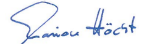 Marion Höcht